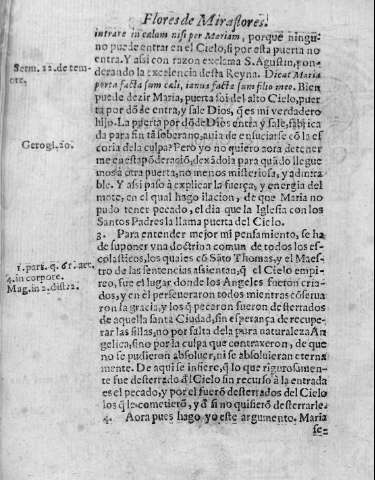 Flores de Miraflores.
intrare in cælum nisi per Mariam, porque ningu-
no puede entrar en el Cielo, si por esta puerta no
entra. Y assi con razon exclama S. Agustin, pon-
Serm. 22. de tem-
derando la excelencia desta Reyna. Dicat Maria
pore.
porta facta sum cæli, ianua facta sum filio meo. Bien
puede dezir Maria, puerta soi del alto Cielo, puer
ta por dõde entra, y sale Dios, q̃ es mi verdadero
hijo. La puerta por dõde Dios entra y sale, fabrica
da para fin tã soberano, auia de ensuciarse cõ la es
Gerogl. 20.
coria dela culpa? Pero yo no quiero aora detener
me en esta põderaciõ, dexãdola para quãdo llegue
mos à otra puerta, no menos misteriosa, y admira
ble. Y assi paso à explicar la fuerça, y energia del
mote, en el qual hago ilacion, de que Maria no
pudo tener pecado, el dia que la Iglesia con los
Santos Padres la llama puerta del Cielo.
3. Para entender mejor mi pensamiento, se ha
de suponer vna doctrina comun de todos los es-
colasticos, los quales cõ Sãto Thomas, y el Maes
1. pars. q. 61. art.
tro de las sentencias assientan, q̃ el Cielo empi-
4. in corpore.
reo, fue el lugar donde los Angeles fueron cria-
Mag. in 2. dist. 2.
dos, y en èl perseueraron todos mientras cõserua
ron la gracia, y los q̃ pecaron fueron desterrados
de aquella santa Ciudad, sin esperança de recupe-
rar las sillas, no por falta de la pura naturaleza An
gelica, sino por la culpa que contraxeron, de que
no se pudieron absoluer, ni se absoluieran eterna
mente. De aqui se infiere, q̃ lo que rigurosamen-
te fue desterrado d̃l Cielo sin recurso à la entrada
es el pecado, y por el fuerõ desterrados del Cielo
los q̃ le cometierõ, y d̃ si no quisierõ desterrarle.
4. Aora pues hago yo este argumento. Maria
se-